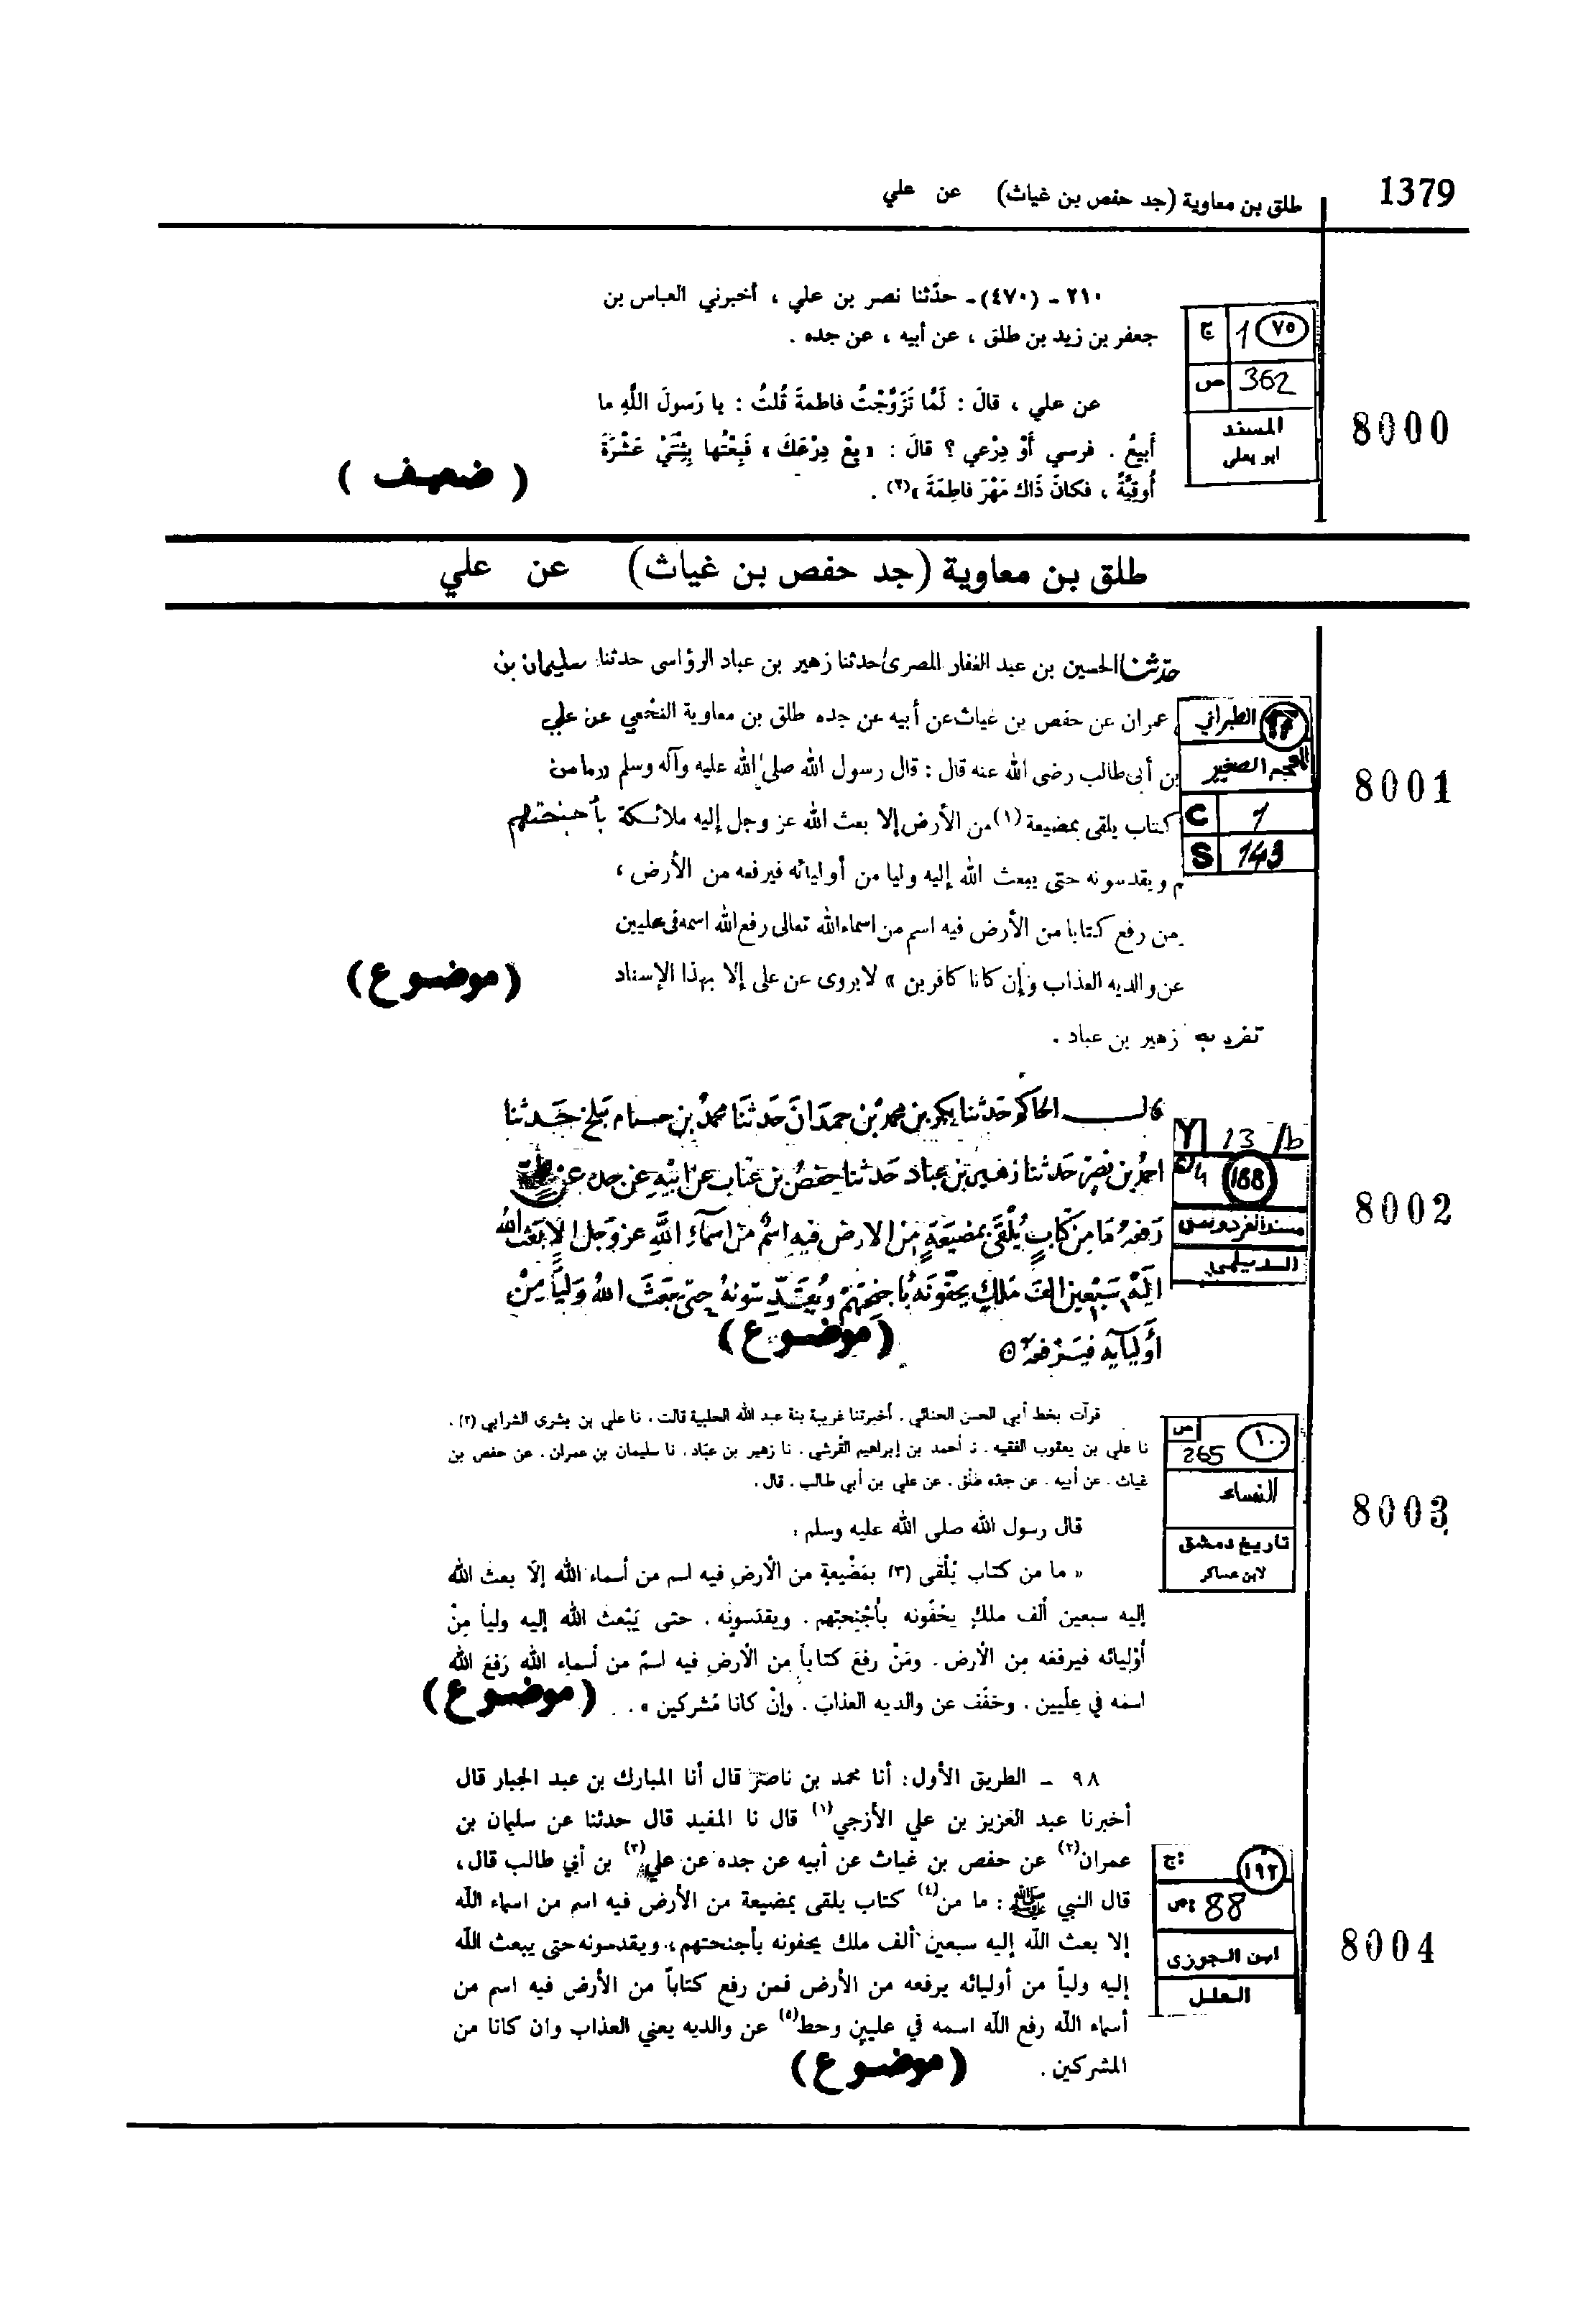 1379
طلق بن معاوية (جد حفص بن غياث) عن علي
٢١٠ - (٤٧٠) - حدّثنا نصر بن علي ، أخبرني العباس بن
جعفر بن زيد بن طلق ، عن أبيه ، عن جده .
عن علي ، قالَ : لَمَّا تَزَوَّجْتُ فاطمةَ قُلتُ : يا رَسولَ اللَّهِ ما
أَبيعُ . فرسي أَوْ دِرْعي ؟ قالَ : « بِعْ دِرْعَكَ » فَبِعْتُها بِثِنْتَيْ عَشْرَةَ
أُوقِيَّةً ، فكانَ ذَاك مَهْرَ فاطِمَةَ »(٢) .
( ضعيف )
ج 1 ٧٥
ص 362
المسند
ابو يعلى
8000
طلق بن معاوية (جد حفص بن غياث) عن علي
حدّثنا الحسين بن عبد الغفار المصرى حدثنا زهير بن عباد الرؤاسى حدثنا سليمان بن
عمران عن حفص بن غياث عن أبيه عن جده طلق بن معاوية النخعي عن علي
بن أبى طالب رضى الله عنه قال : قال رسول الله صلى الله عليه وآله وسلم « ما من
كتاب يلقى بمضيعة (١) من الأرض إلا بعث الله عز وجل إليه ملائكة بأجنحتهم
م ويقدسونه حتى يبعث الله إليه وليا من أوليائه فيرفعه من الأرض ،
من رفع كتابا من الأرض فيه اسم من اسماء الله تعالى رفع الله اسمه فى عليين
عن والديه العذاب وإن كانا كافرين » لا يروى عن على إلا بهذا الإسناد
تفرد به زهير بن عباد .
(موضوع)
الطبراني
المعجم الصغير
C 1
S 143
8001
قالـــ الحاكم حَدثنا بكر بن محمد بن حمدانَ حَدثنَا محمدُ بن حسام ببلخ حَدثنا
احمدُ بن نصرٍ حَدثنا زهير بن عباد حَدثنا حفصُ بن غياث عن ابيْهِ عن جده عن
رَفعهُ مَا مِن كتَابٍ يُلْقَى بمضيَعَةٍ مِنَ الارض فيهِ اسمٌ مِنْ اسمَآءِ اللَّهِ عز وَجَل الا بعَثَ الله
اليْهِ سَبْعينَ الفَ مَلكٍ يحفّونَه بأجنحَتهِمْ وَيُقَدّسونَهُ حتَى يبعَثَ اللهُ وَليًا مِنْ
أوليَآيه فيَرفعهُ
(موضوع)
13 /b
168
مسند الفردوس
الديلمي
8002
قرأت بخط أبي الحسن الحنائي ، أخبرتنا غريبة بنة عبد الله الحلبية قالت ، نا علي بن بشرى الشرابي (٢) ،
نا علي بن يعقوب الفقيه ، نـ أحمد بن إبراهيم القرشي ، نا زهير بن عبّاد ، نا سليمان بن عمران ، عن حفص بن
غياث ، عن أبيه ، عن جدّه طَلْق ، عن علي بن أبي طالب ، قال ،
قال رسول الله صلى الله عليه وسلم ،
« ما من كتاب يُلْقى (٣) بمَضْيعةٍ من الأرضِ فيه اسم من أسماء الله إلّا بعث الله
إليه سبعين ألف ملكٍ يحفّونه بأجْنِحتِهم ، ويقدسونه ، حتى يَبْعث الله إليه ولياً مِنْ
أوْليائه فيرفعه مِن الأرض ، ومَنْ رفعَ كتاباً مِن الأرضِ فيه اسمٌ من أسماء الله رَفعَ الله
اسمَه في عِلّيين ، وخفّف عن والديه العذابَ ، وإنْ كانا مُشركين » .
(موضوع)
ص 265 ١٠٠
النساء
تاريخ دمشق
لابن عساكر
8003
٩٨ - الطريق الأول: أنا محمد بن ناصر قال أنا المبارك بن عبد الجبار قال
أخبرنا عبد العزيز بن علي الأزجي(١) قال نا المفيد قال حدثنا عن سليمان بن
عمران(٢) عن حفص بن غياث عن أبيه عن جده عن علي(٣) بن أبي طالب قال،
قال النبي ﷺ : ما من(٤) كتاب يلقى بمضيعة من الأرض فيه اسم من اسماء الله
إلا بعث الله إليه سبعين ألف ملك يحفونه بأجنحتهم، ويقدسونه حتى يبعث الله
إليه ولياً من أوليائه يرفعه من الأرض فمن رفع كتاباً من الأرض فيه اسم من
أسماء الله رفع الله اسمه في عليين وحط(٥) عن والديه يعني العذاب وان كانا من
المشركين .
(موضوع)
ج: ١٩٢
ص: 88
ابن الجوزى
العلل
8004